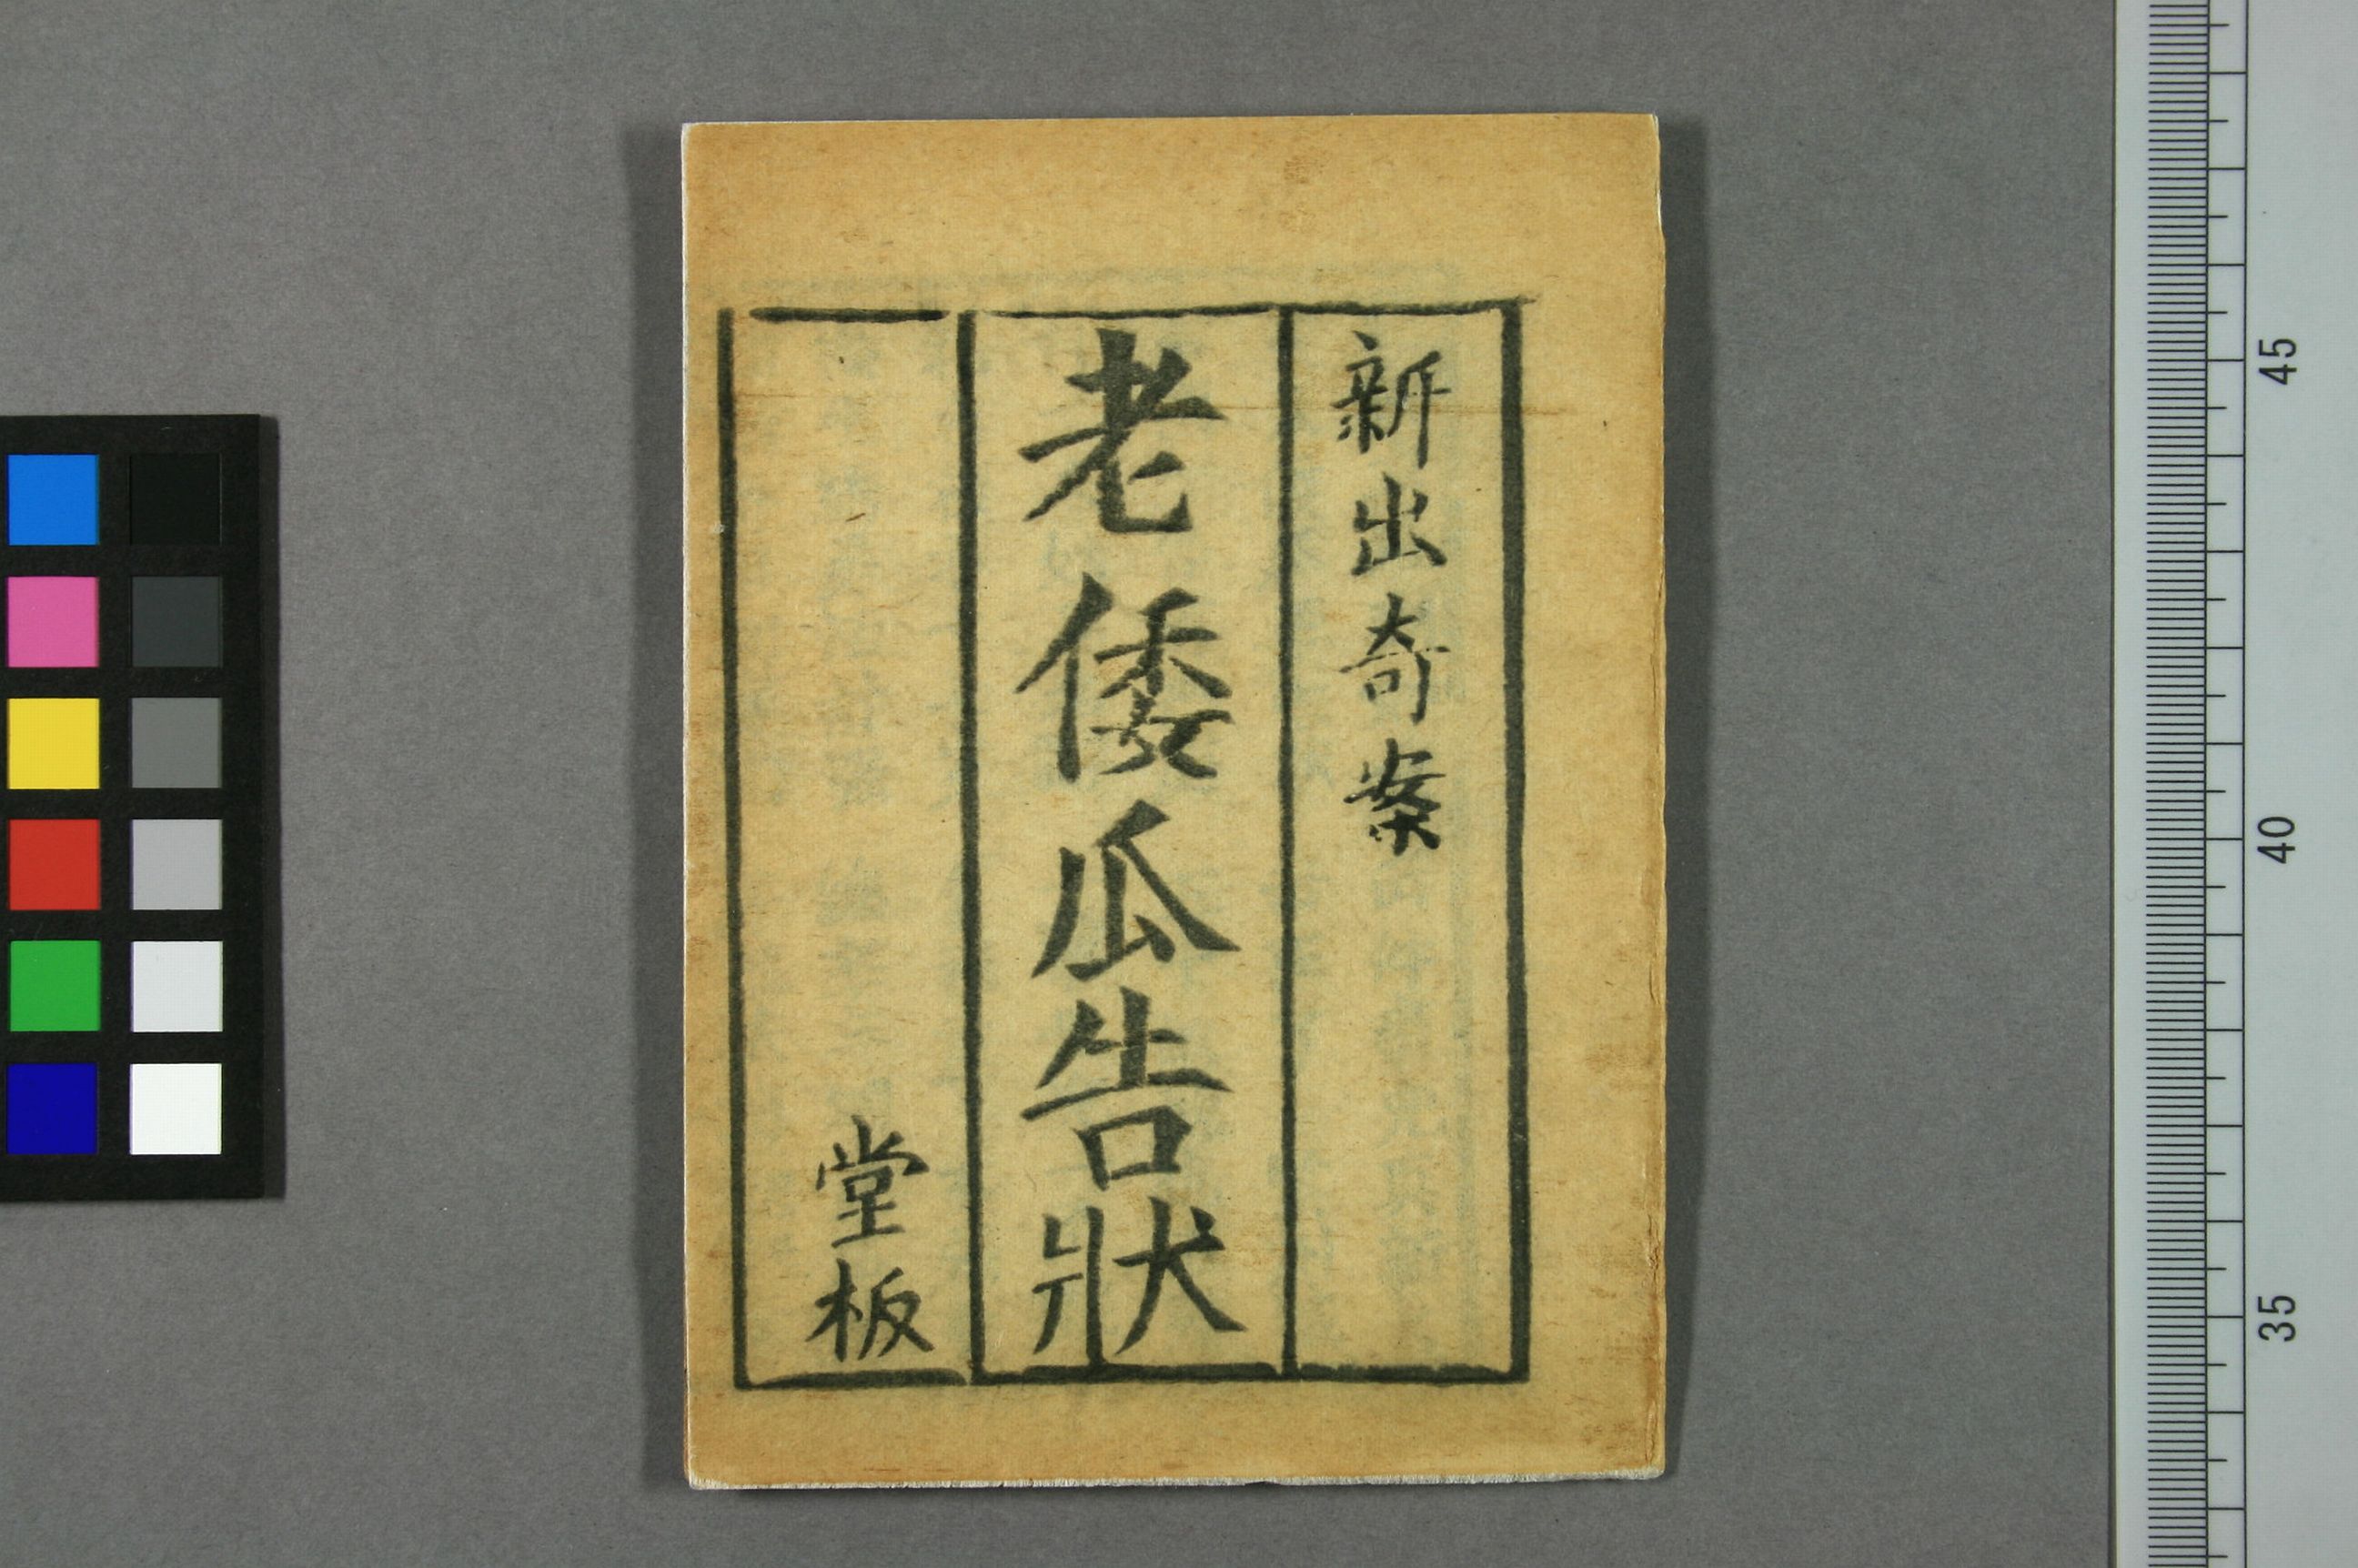 新出奇案
老倭瓜告狀
堂板
45
40
35